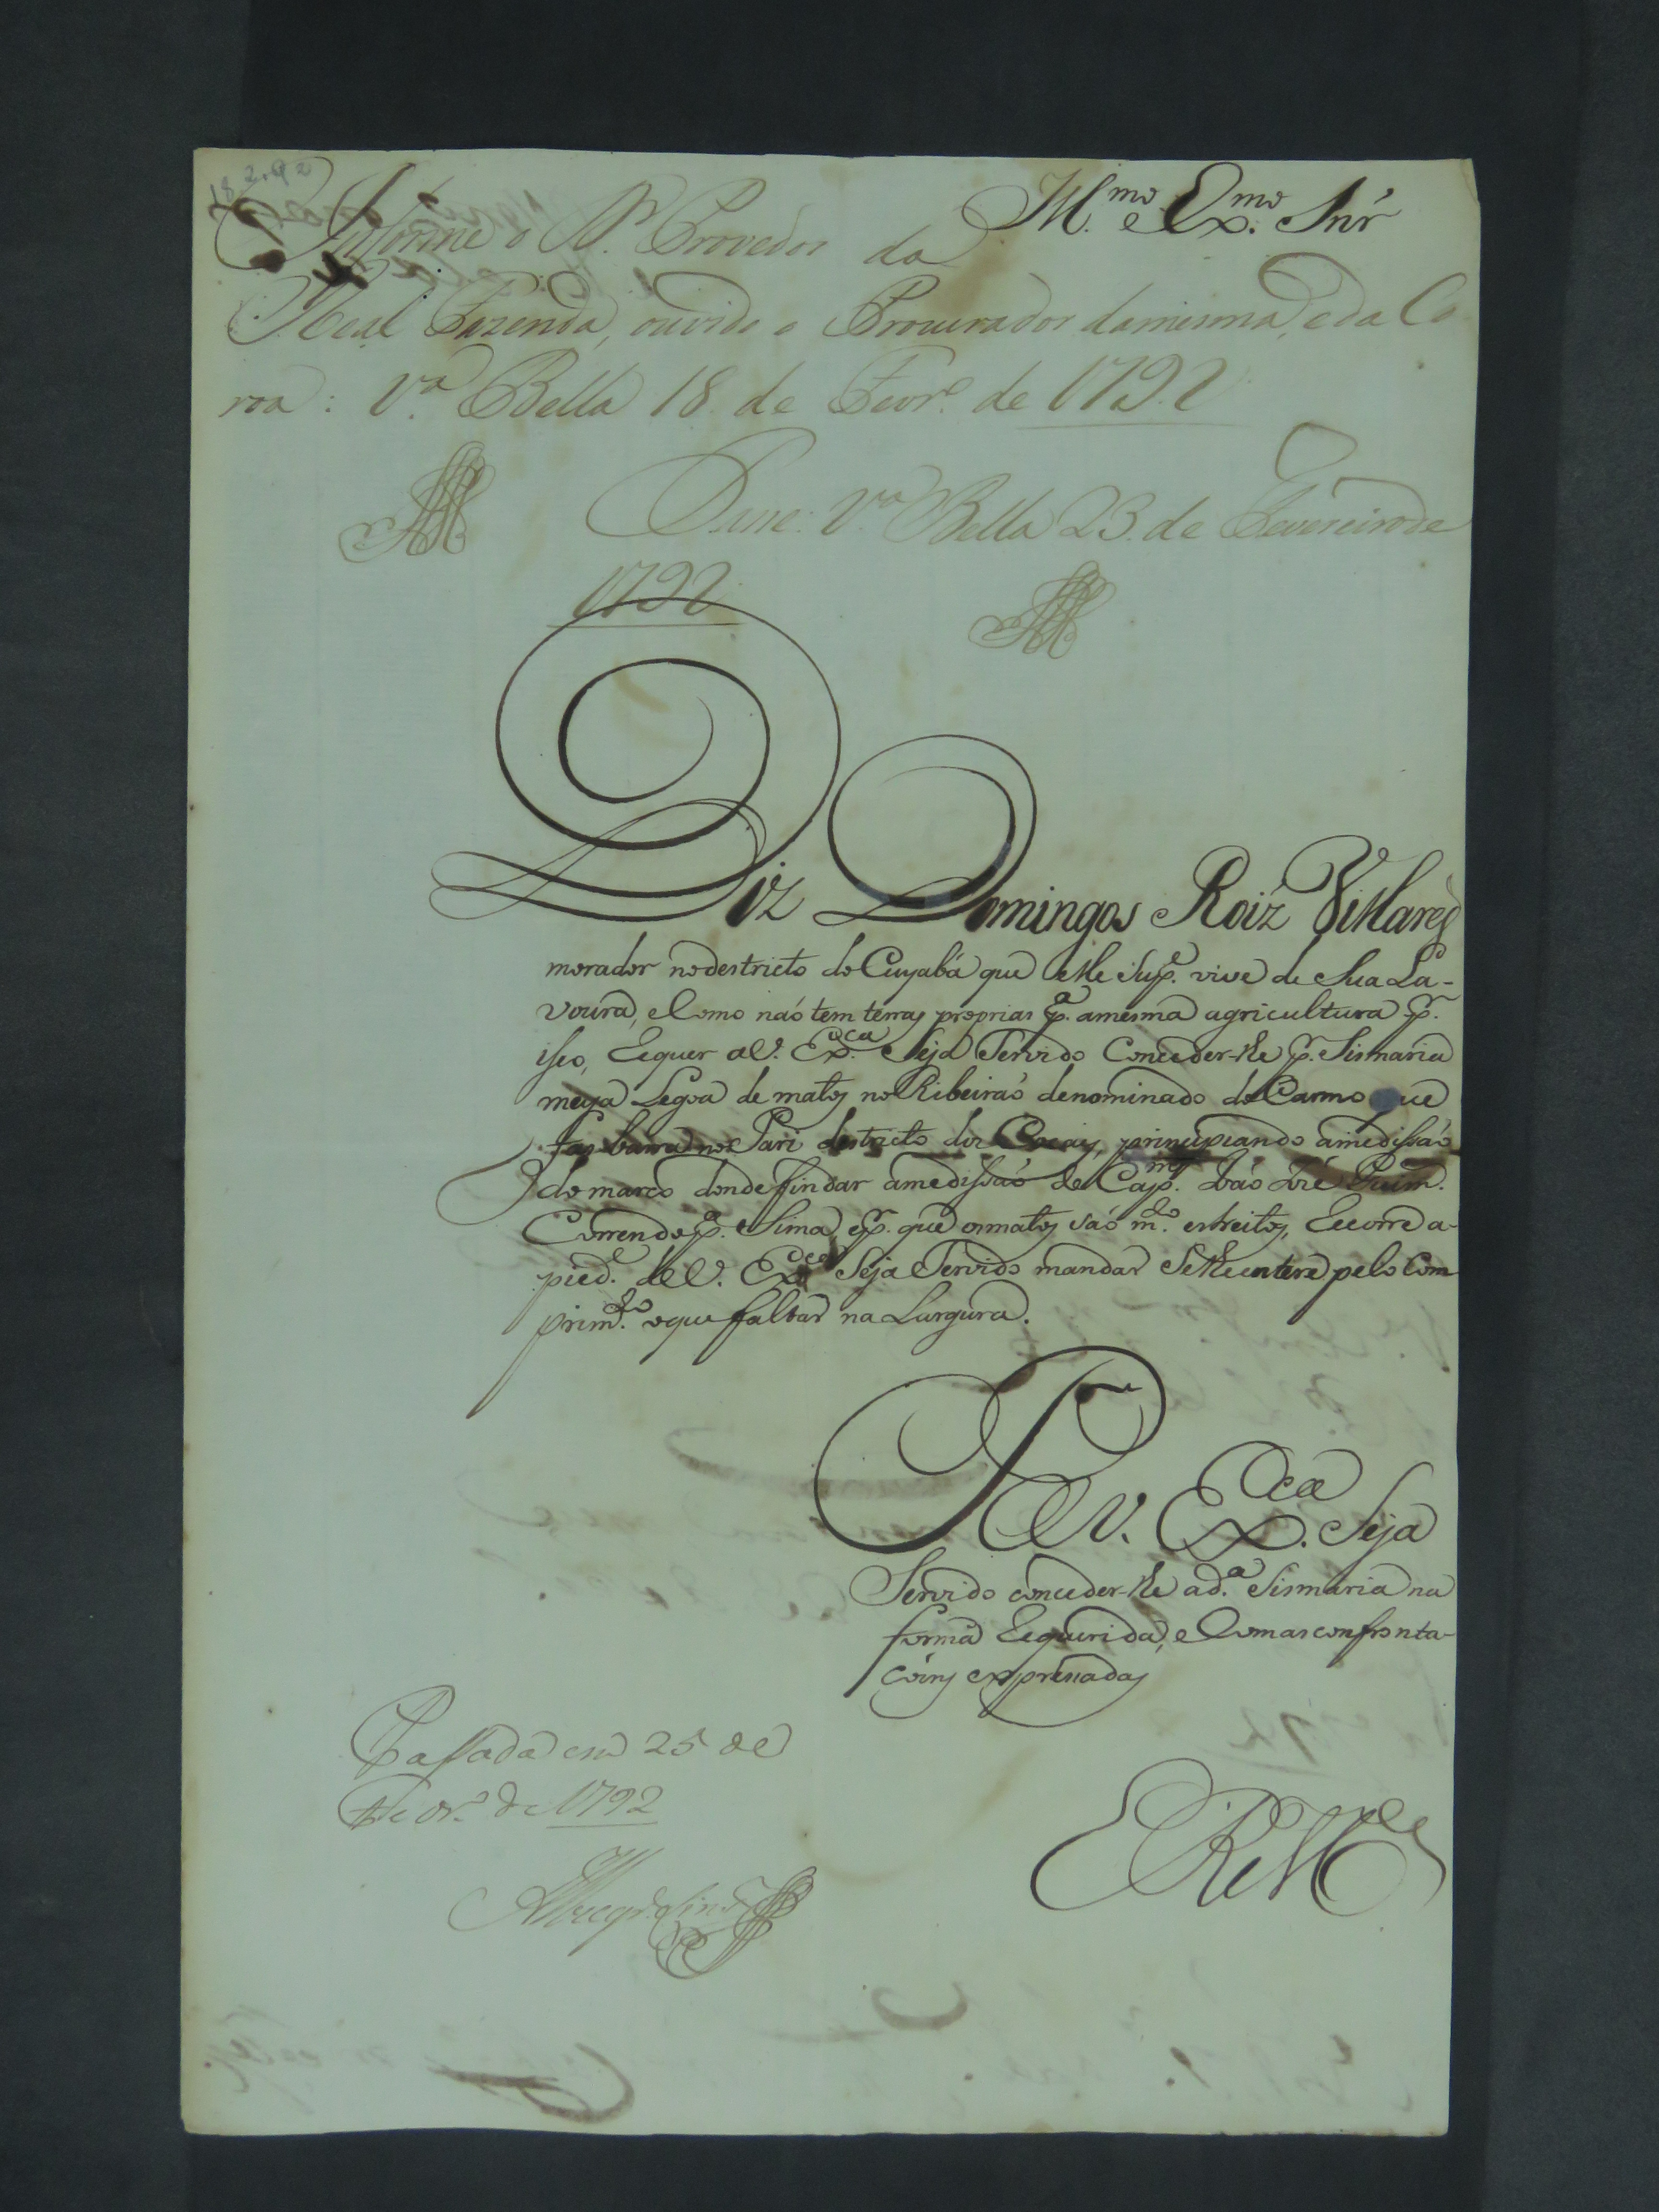 18.2.92
Ill.mo e Ex.mo Snr̃
Informe o S.r Provedor da
Real Fazenda, ouvido o Procurador damesma, e da Co
roa: V.a Bella 18 de Fevr.o de 1792
Passe: V.a Bella 23 de Fevereiro de
1792
Diz Domingos Roiz Villares
morador no destricto do Cuyabá que elle Sup.e vive de Sua La-
voura, e Como naó tem terras proprias p.a amesma agricultura p.r
isso, Requer a V. Ex.ca Seja Servido Conceder-lhe p.r Sismaria
meya Legoa de matos no Ribeiraó denominado do Carmo que
fas barra no Pari destricto dos Cocays, principiando amedissaó
do marco donde findar amedissaó de Cap.m Joaó José
Correndo p.a Sima, e p.r que os matos saó m.to estreitos, Recorre a
pied.e de V. Ex.ca Seja Servido mandar Se lhe entere pelo Com
prim.to o que faltar na Largura.
P a V. Ex.ca Seja
Servido conceder-lhe a d.a Sismaria na
forma Requerida, e Com as confronta-
coiñs expressadas
Passada em 25 de
Fevr.o de 1792
E R M.ce